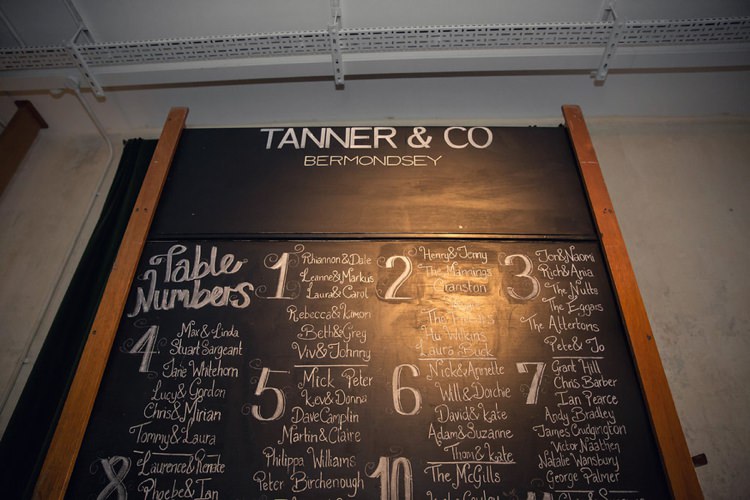 TANNER & CO
BERMONDSEY
Table
Numbers
1
Rhiannon & Dale
Leanne & Markus
Laura & Carol
Rebecca & Kimon
Beth & Greg
Viv & Johnny
2
Henry & Jonny
The Mannings
Cranston
The
Hu Wilkins
Laura Buck
3
Jon & Naomi
Rich & Ania
The Nutts
The Eggars
The Allertons
Pete & Jo
4
Max & Linda
Stuart Sargeant
Jane Whitehorn
Lucy & Gordon
Chris & Mirian
Tommy & Laura
5
Mick Peter
Kev & Donna
Dave Camplin
Martin & Claire
Philippa Williams
Peter Birchenough
6
Nick & Annette
Will & Dorchie
David & Kate
Adam & Suzanne
Thom & Kate
7
Grant Hill
Chris Barber
Ian Pearce
Andy Bradley
James Crudgington
Victor Naathen
Natalie Wansbury
George Palmer
8
Laurence & Renate
Phoebe & Ian
10
The McGills